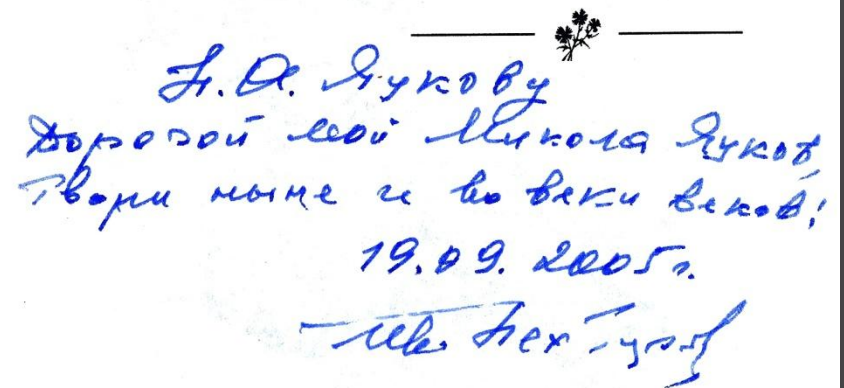 Н. А. Яукову
Дорогой мой Микола Яуков,
Твори ныне и во веки веков!
19.09.2005г.
Ив.